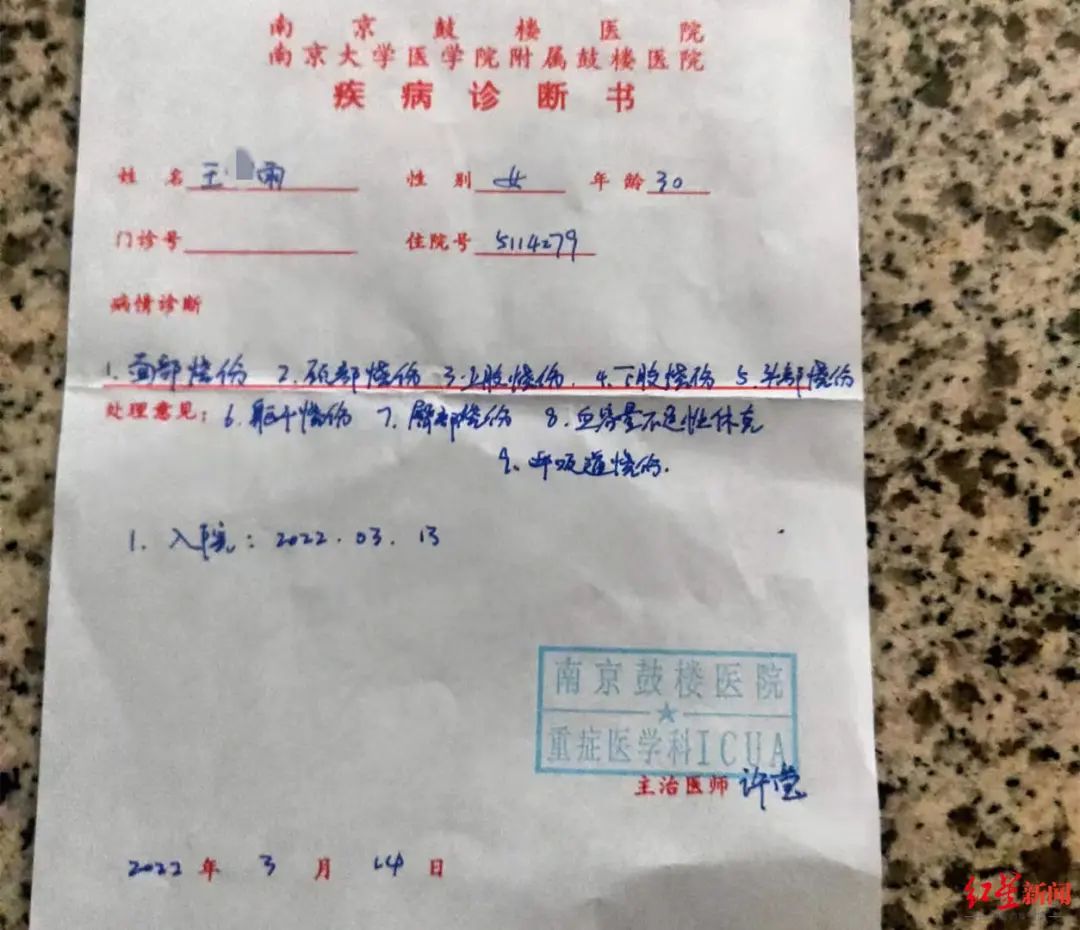 南京鼓楼医院
南京大学医学院附属鼓楼医院
疾病诊断书
姓名 王 雨 性别 女 年龄 30
门诊号 住院号 5114279
病情诊断
1. 面部烧伤 2. 颈部烧伤 3. 上肢烧伤. 4. 下肢烧伤 5. 头部烧伤
处理意见: 6. 躯干烧伤 7. 臀部烧伤 8. 血容量不足性休克
9. 呼吸道烧伤.
1. 入院: 2022.03.13
南京鼓楼医院
重症医学科ICUA
主治医师 许莹
2022年3月14日
红星新闻